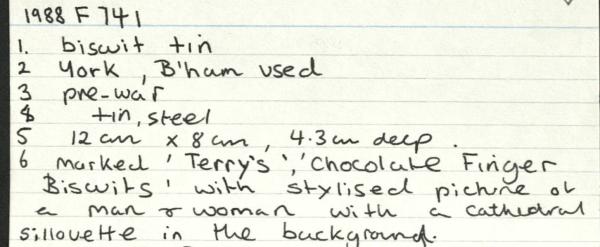 1988 F 741
1. biscuit tin
2 York, B'ham used
3 pre-war
4 tin, steel
5 12 cm x 8 cm, 4.3 cm deep.
6 marked 'Terry's', 'Chocolate Finger
Biscuits' with stylised picture of
a man & woman with a cathedral
sillouette in the background.